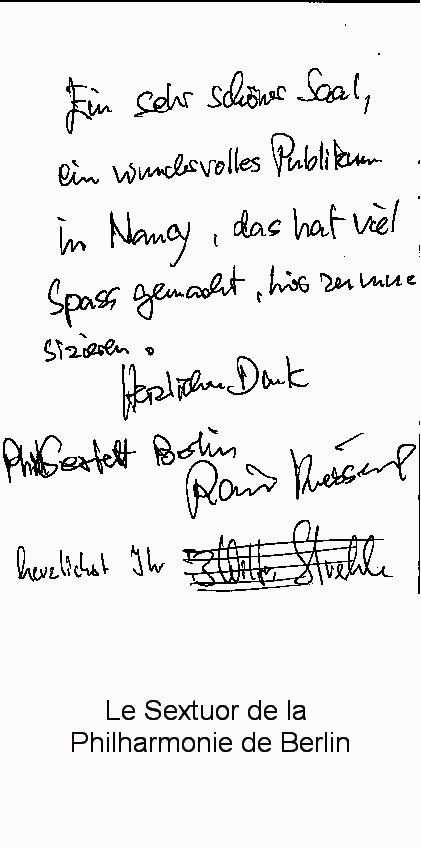 Ein sehr schöner Saal,
ein wundervolles Publikum
in Nancy, das hat viel
Spass gemacht, hier zu mu
sizieren.
Herzlichen Dank
Phil Sextett Berlin
herzlichst Ihr
Le Sextuor de la
Philharmonie de Berlin